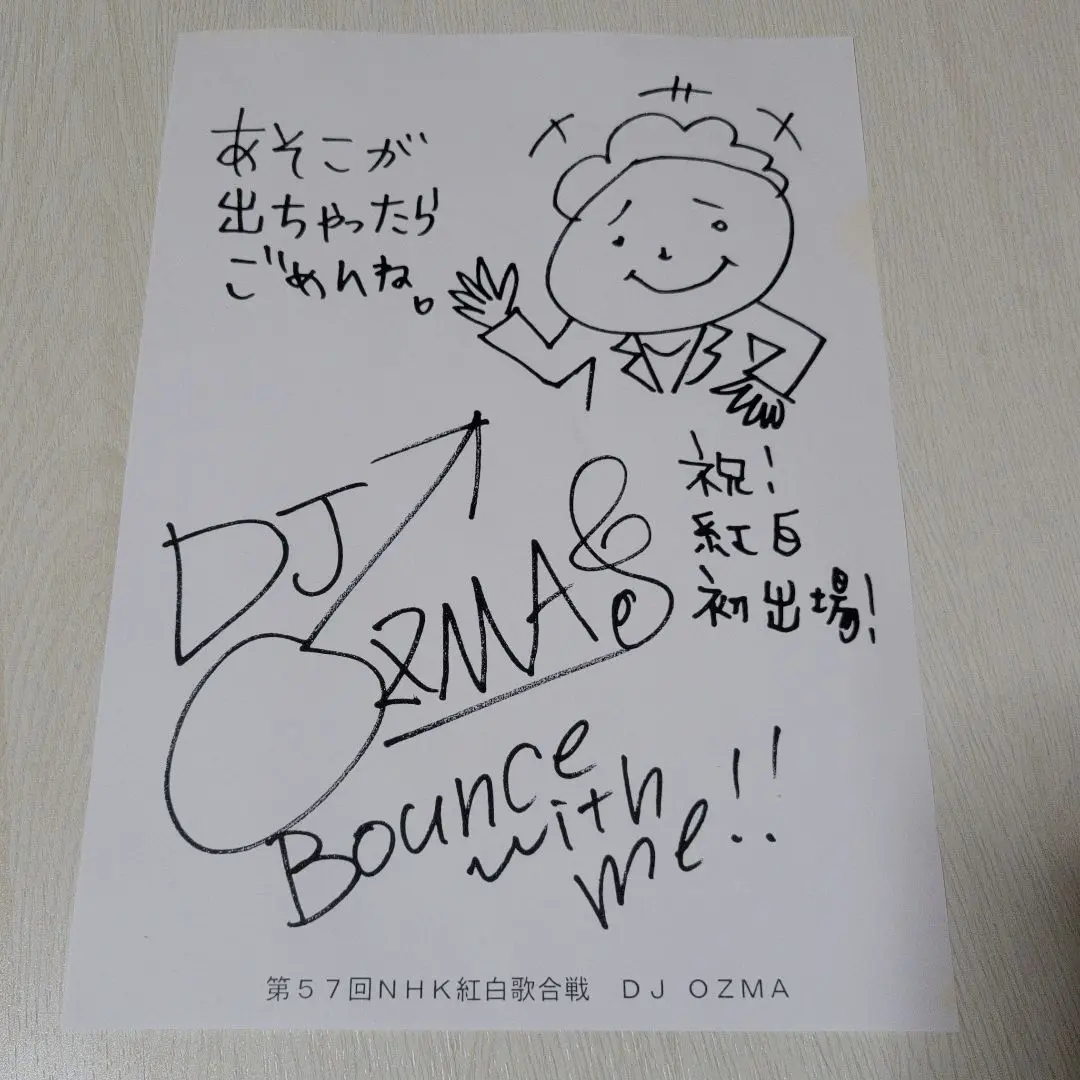 あそこが
出ちゃったら
ごめんね。
祝!
紅白
初出場!
DJ
OZMA
Bounce
with
me!!
第57回NHK紅白歌合戦 DJ OZMA